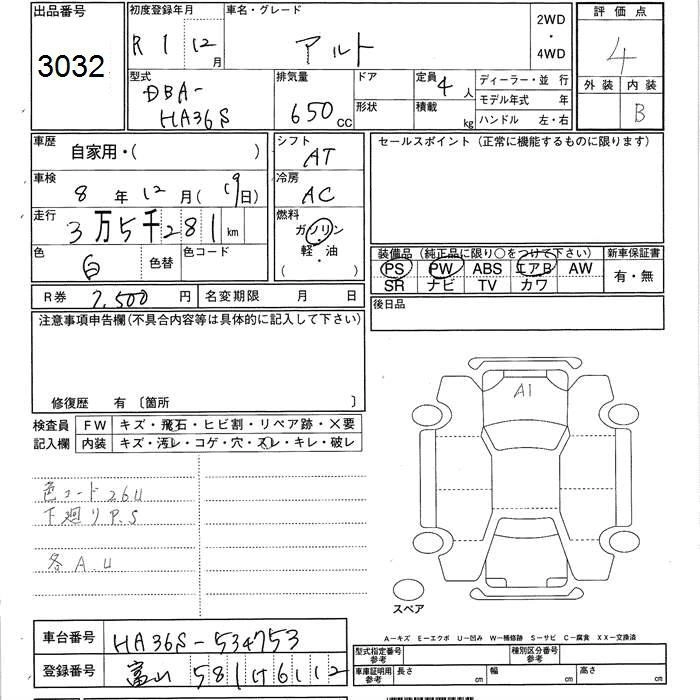 出品番号 初度登録年月 車名・グレード 2WD・4WD 評価点
3032 R1 12月 アルト 4
外装 内装
B
型式 排気量 ドア 定員 4人 ディーラー・並行
DBA-HA36S 650cc 形状 積載 kg モデル年式 年
ハンドル 左・右
車歴 自家用・( ) シフト AT セールスポイント(正常に機能するものに限ります)
車検 8年12月(19日) 冷房 AC
走行 3万5千281km 燃料 ガソリン・軽・油 ( )
色 白 色替 色コード
装備品(純正品に限り○をつけて下さい) 新車保証書
PS PW ABS エアB AW 有・無
SR ナビ TV カワ
R券 7,500円 名変期限 月 日 後日品
注意事項申告欄(不具合内容等は具体的に記入して下さい)
修復歴 有〔箇所 〕
A1
検査員 FW キズ・飛石・ヒビ割・リペア跡・×要
記入欄 内装 キズ・汚レ・コゲ・穴・スレ・キレ・破レ
色コード26U
下廻りP.S
各A.U
スペア
A-キズ E-エクボ U-凹み W-補修跡 S-サビ C-腐食 XX-交換済
車台番号 HA36S-534753
登録番号 富山 581 け 6112
型式指定番号 参考 種別区分番号 参考
車庫証明用 参考 長さ cm 幅 cm 高さ cm